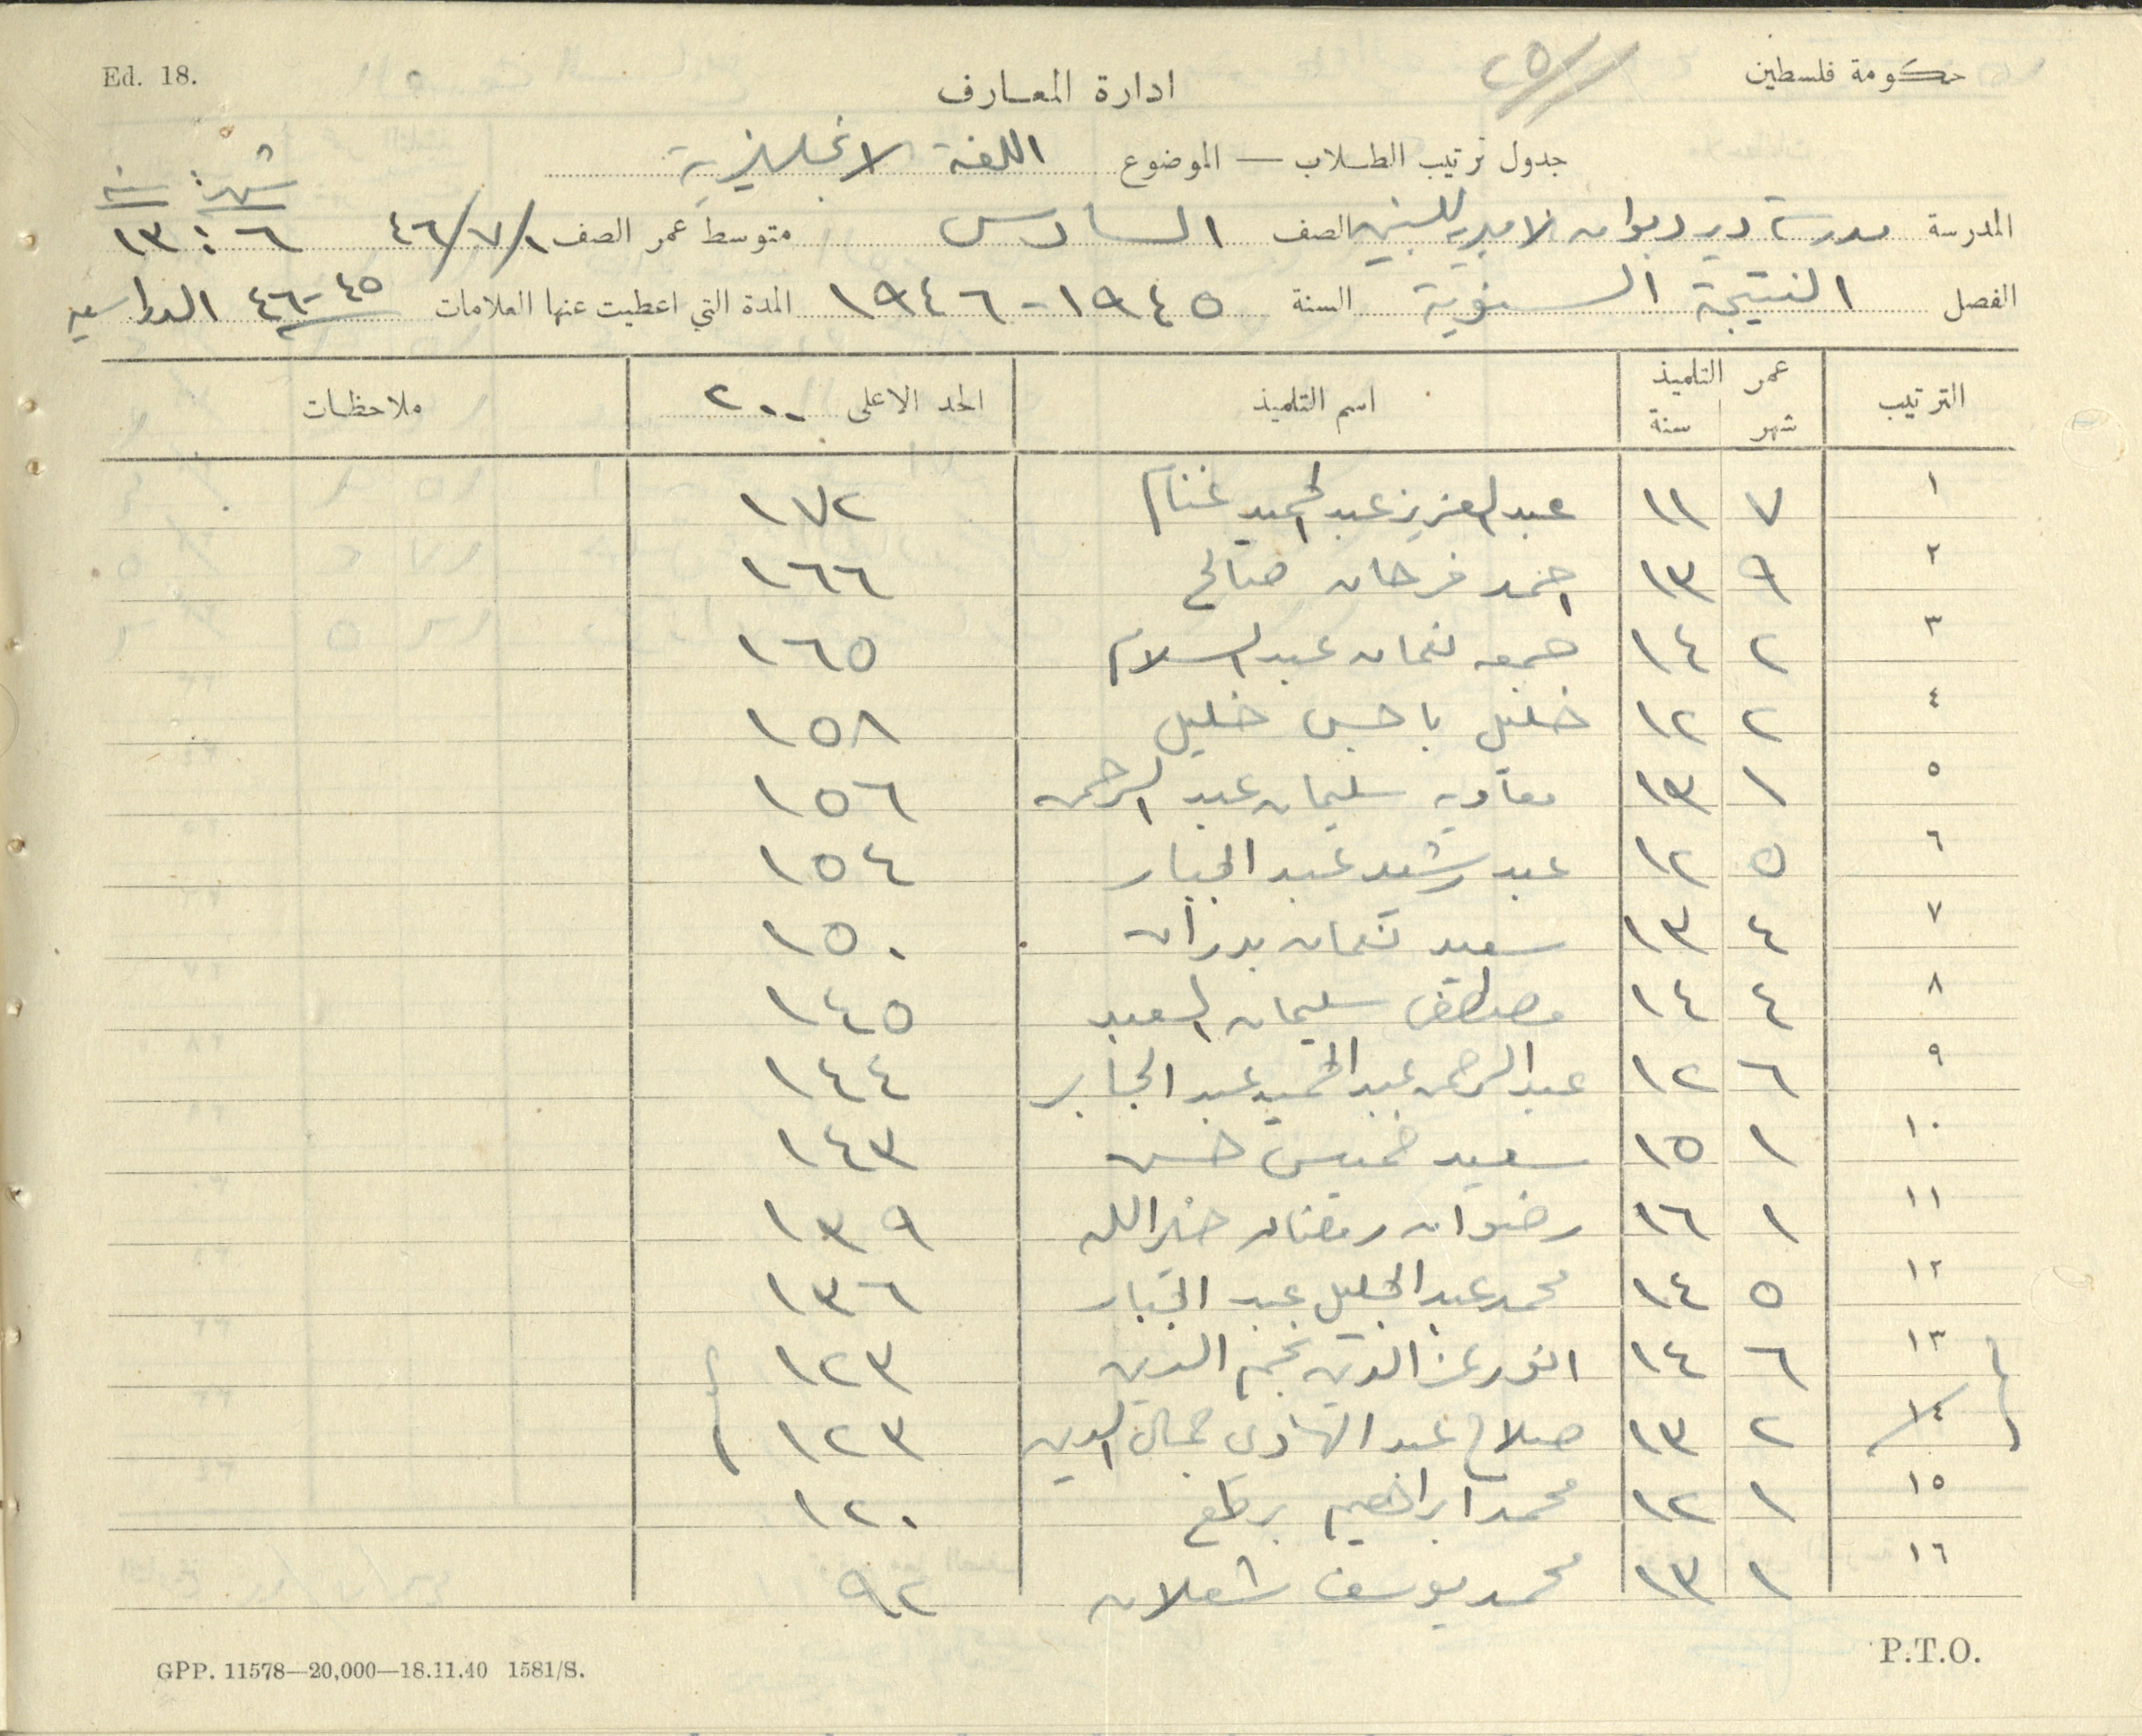 Ed. 18.
حكومة فلسطين
٢٥//
ادارة المعارف
جدول ترتيب الطلاب — الموضوع اللغة الانجليزية
شهر : سنة
المدرسة مدرسة دير ديوان الاميرية للبنين الصف السادس متوسط عمر الصف ٤٦/٧/١ ٦ : ١٣
الفصل النتيجة السنوية السنة ١٩٤٥-١٩٤٦ المدة التي اعطيت عنها العلامات ٤٥-٤٦
الترتيب عمر التلميذ شهر سنة اسم التلميذ الحد الاعلى ٢٠٠ ملاحظات
١ ٧ ١١ عبد العزيز عبد الحميد غنام ١٧٢
٢ ٩ ١٣ احمد فرحان صالح ١٦٦
٣ ٢ ١٤ جمعه نعمان عبد السلام ١٦٥
٤ ٢ ١٢ خليل باجس خليل ١٥٨
٥ ١ ١٣ معاويه سليمان عبد الرحمن ١٥٦
٦ ٥ ١٢ عبد رشيد عبد الجبار ١٥٤
٧ ٤ ١٣ سعيد نعمان بدران ١٥٠
٨ ٤ ١٤ مصطفى سليمان السعيد ١٤٥
٩ ٦ ١٢ عبد الرحمن عبد الحميد عبد الجابر ١٤٤
١٠ ١ ١٥ سعيد خميس حسن ١٤٣
١١ ١ ١٦ رضوان رمضان خير الله ١٣٩
١٢ ٥ ١٤ محمد عبد الجليل عبد الجبار ١٣٦
١٣ ٦ ١٤ انور عز الدين نجم الدين ١٢٣
١٤ ٢ ١٣ صلاح عبد الهادي جمال الدين ١٢٣
١٥ ١ ١٢ محمد ابراهيم ١٢٠
١٦ ١ ١٣ محمد يوسف شعلان ٩٢
GPP. 11578—20,000—18.11.40 1581/S.
P.T.O.